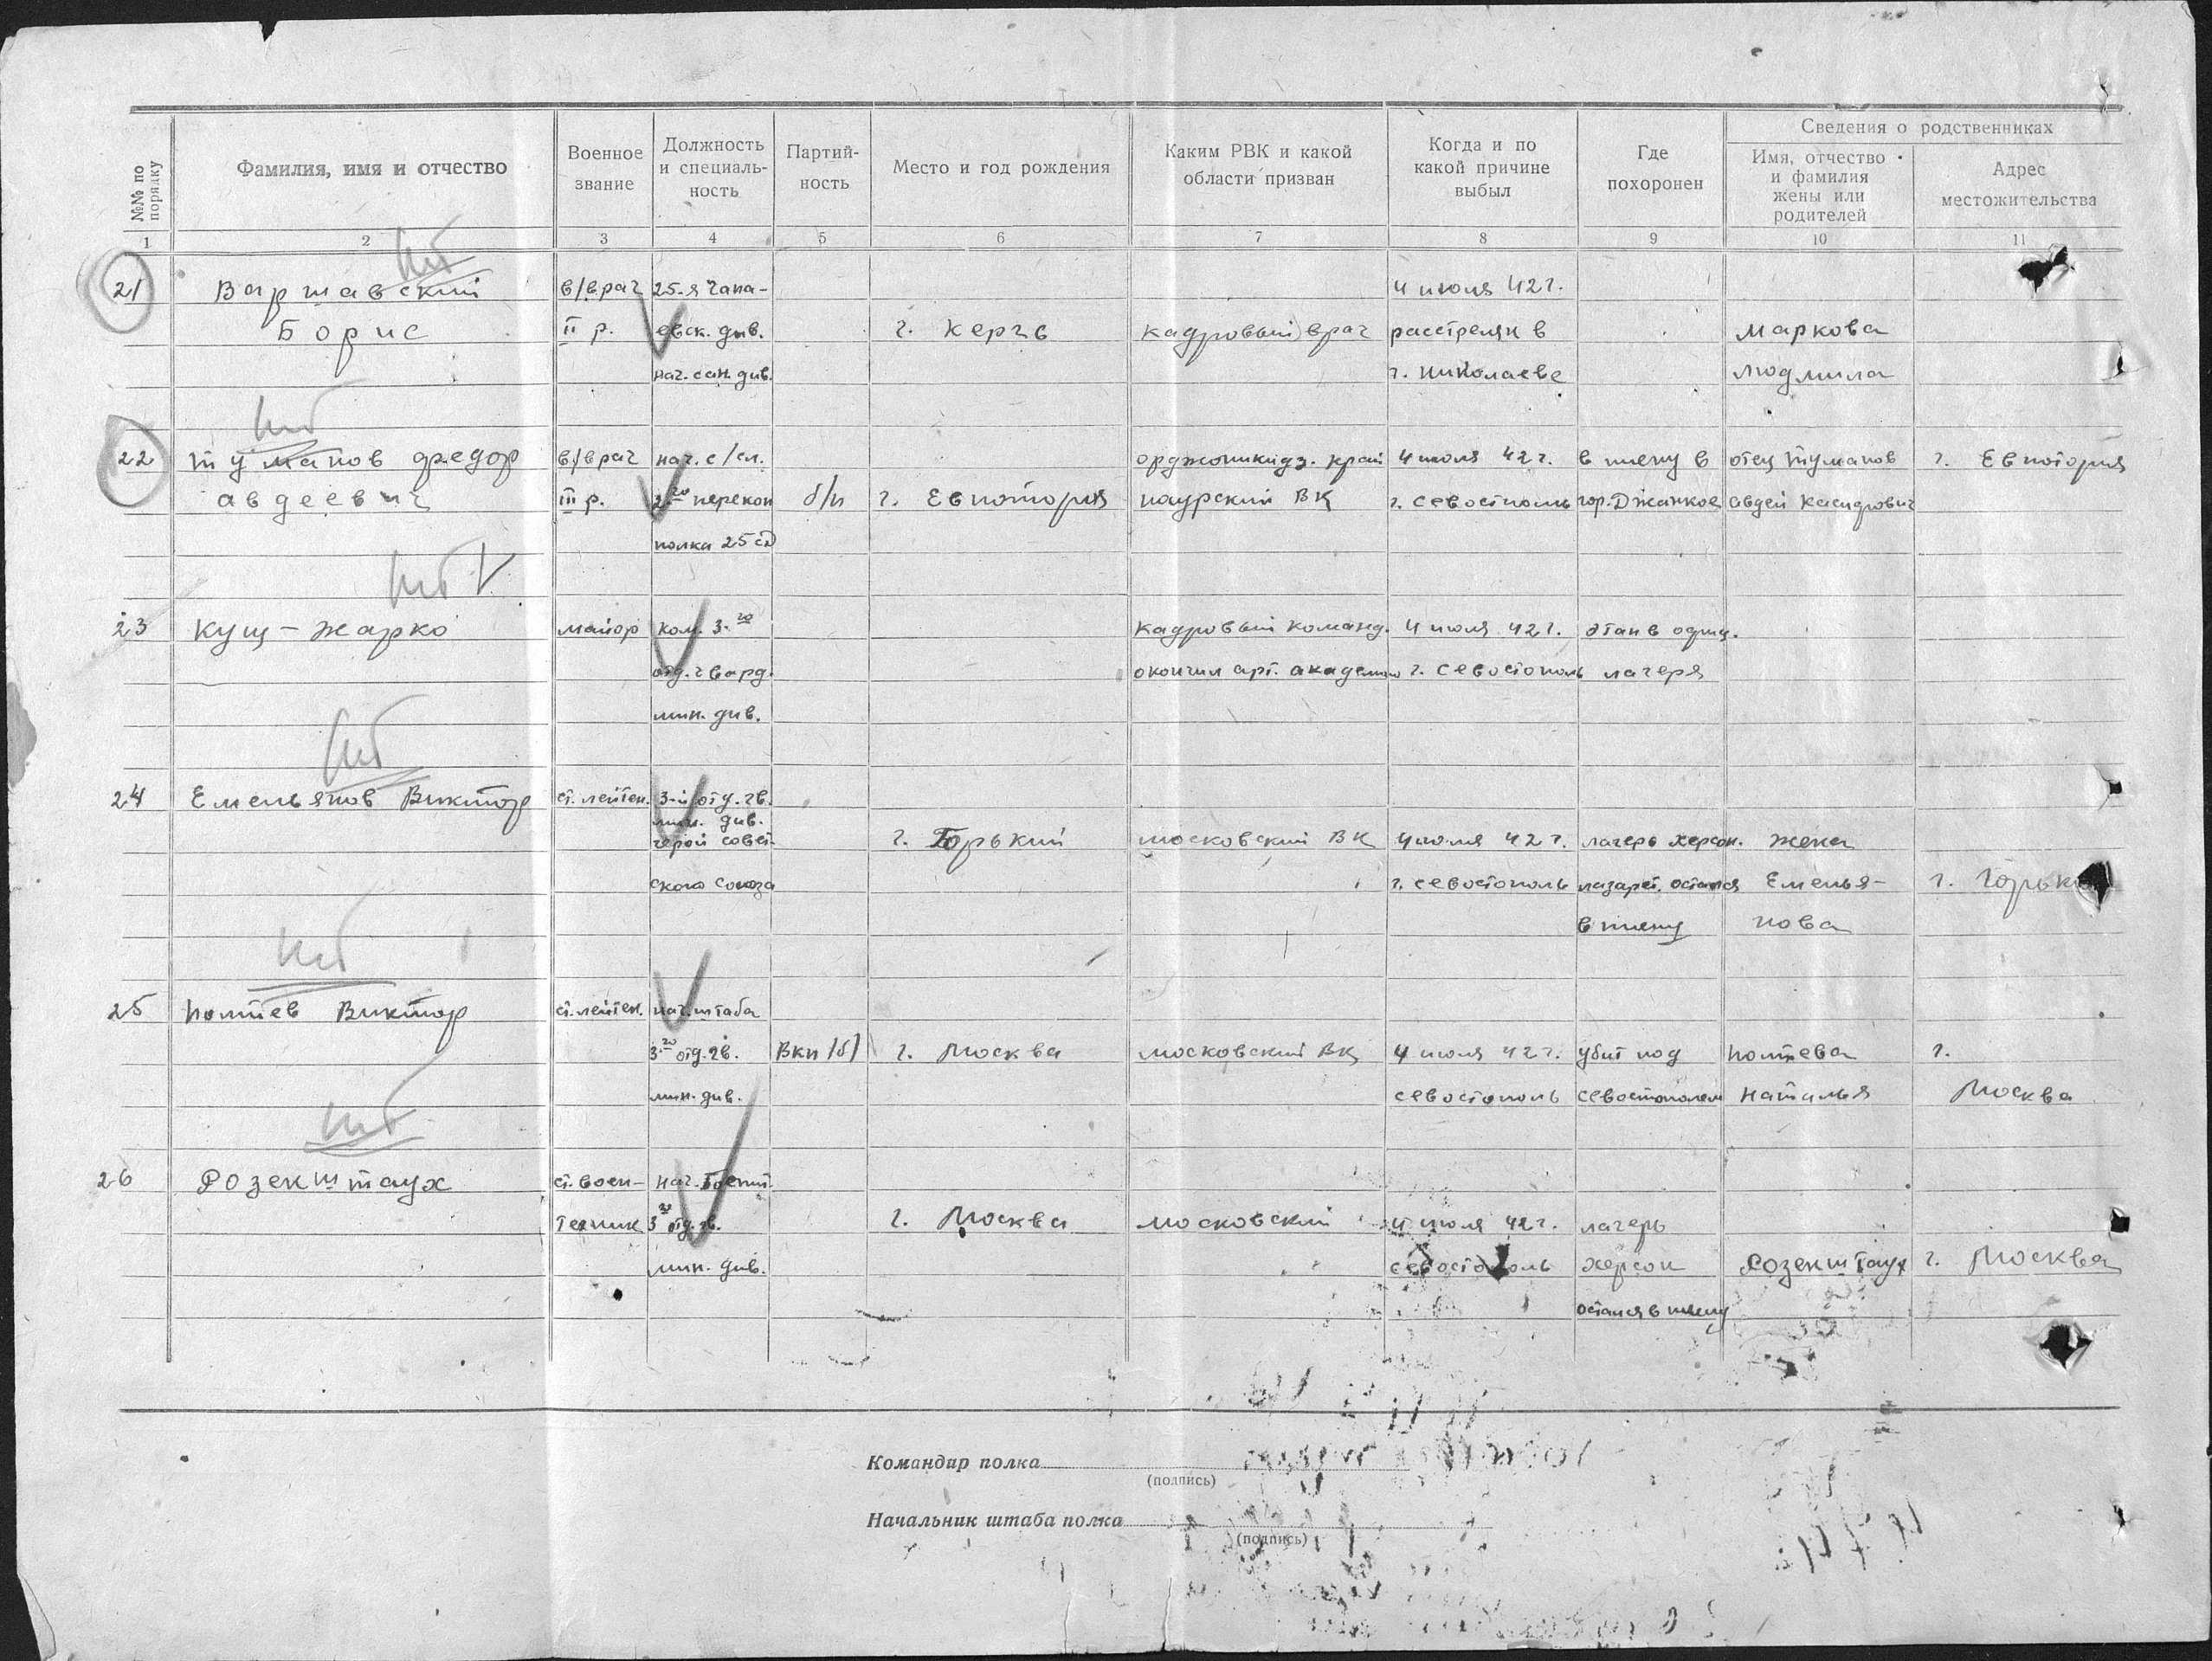 №№ по порядку
Фамилия, имя и отчество
Военное звание
Должность и специаль-ность
Партий-ность
Место и год рождения
Каким РВК и какой области призван
Когда и по какой причине выбыл
Где похоронен
Сведения о родственниках
Имя, отчество и фамилия жены или родителей
Адрес местожительства
1 2 3 4 5 6 7 8 9 10 11
21 Варшавский в/врач 25-я Чапа- 4 июля 42 г.
Борис II р. евск. див. г. Керчь кадровый врач расстрелян в Маркова
нач. сан. див. г. Николаеве Людмила
22 Туманов Федор в/врач нач. с/сл. орджоникидз. край 4 июля 42 г. в плену в отец Туманов г. Евпатория
Авдеевич III р. 2го перекоп б/п г. Евпатория наурский ВК г. Севостополь гор. Джанкое Авдей
полка 25 сд
23 Кущ-Жарко майор ком. 3-го кадровый команд. 4 июля 42 г. этап в офиц.
отд. гвард. окончил арт. академию г. Севостополь лагеря
мин. див.
24 Емельянов Виктор ст. лейтен. 3-й отд. гв.
мин. див.
герой совет- г. Горький московский ВК 4 июля 42 г. лагерь Херсон. жена
ского союза г. Севостополь лазарет. остался Емелья- г. Горьк
в плену нова
25 Поптев Виктор ст. лейтен. нач. штаба
3го отд. гв. ВКП(б) г. Москва московский ВК 4 июля 42 г. убит под Поптева г.
мин. див. Севостополь Севостополем Наталья Москва
26 Розекштаух ст. воен- нач. Боепит.
техник 3го отд. гв. г. Москва московский 4 июля 42 г. лагерь
мин. див. Севостополь Херсон Розекштаух г. Москва
остался в плену
Командир полка
(подпись)
Начальник штаба полка
(подпись)